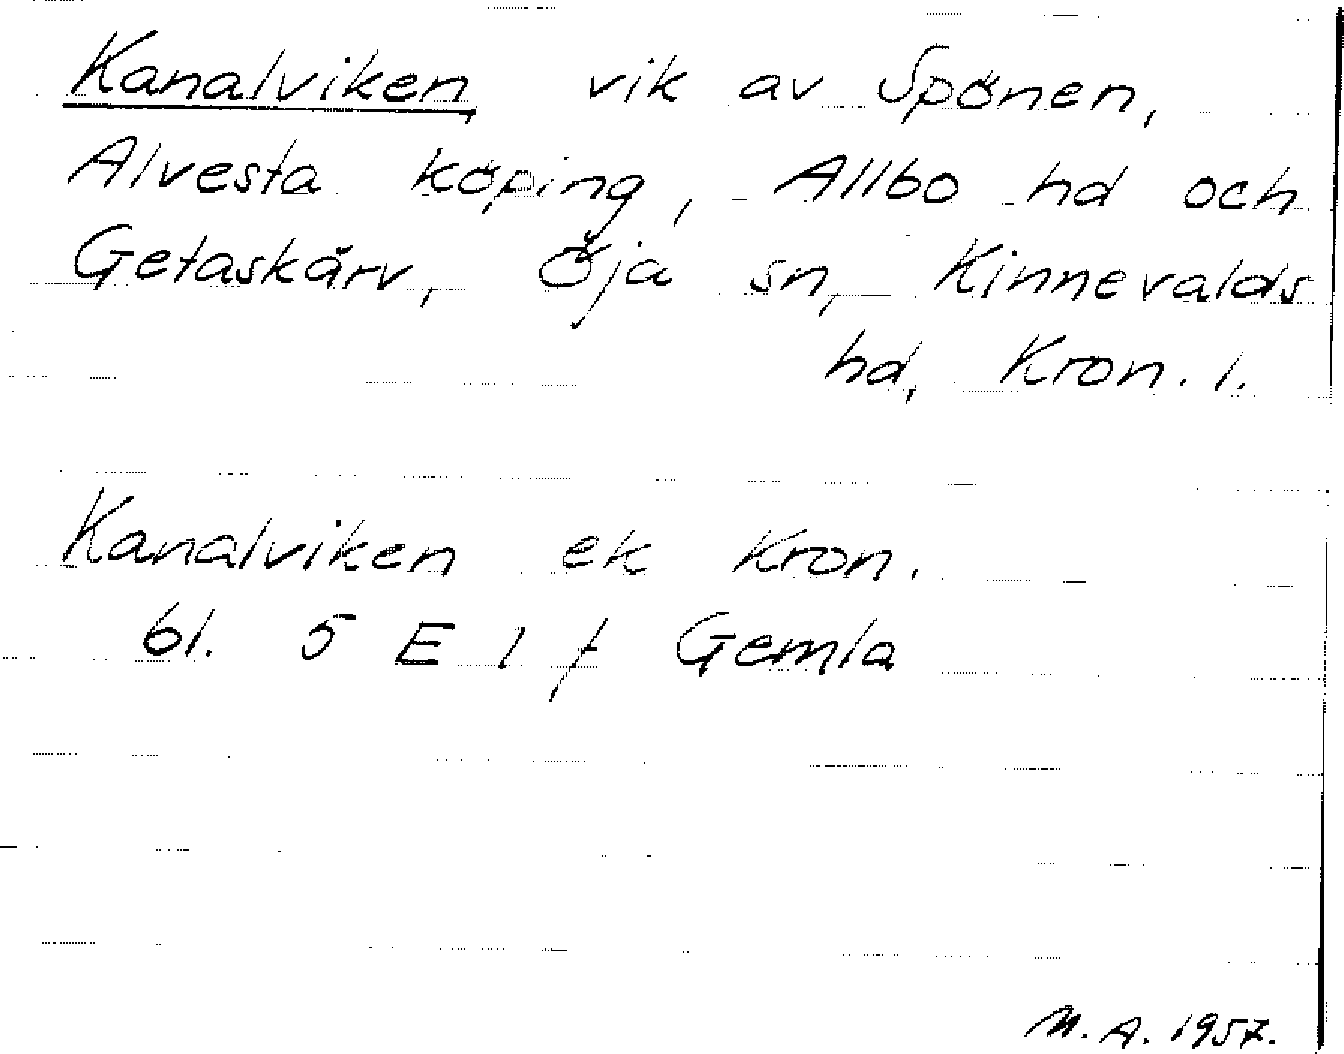 Kanalviken, vik av Spånen,
Alvesta köping, Allbo hd och
Getaskärv, Öja sn, Kinnevalds
hd, Kron. l.
Kanalviken ek Kron.
bl. 5 E 1 f Gemla
M. A. 1957.